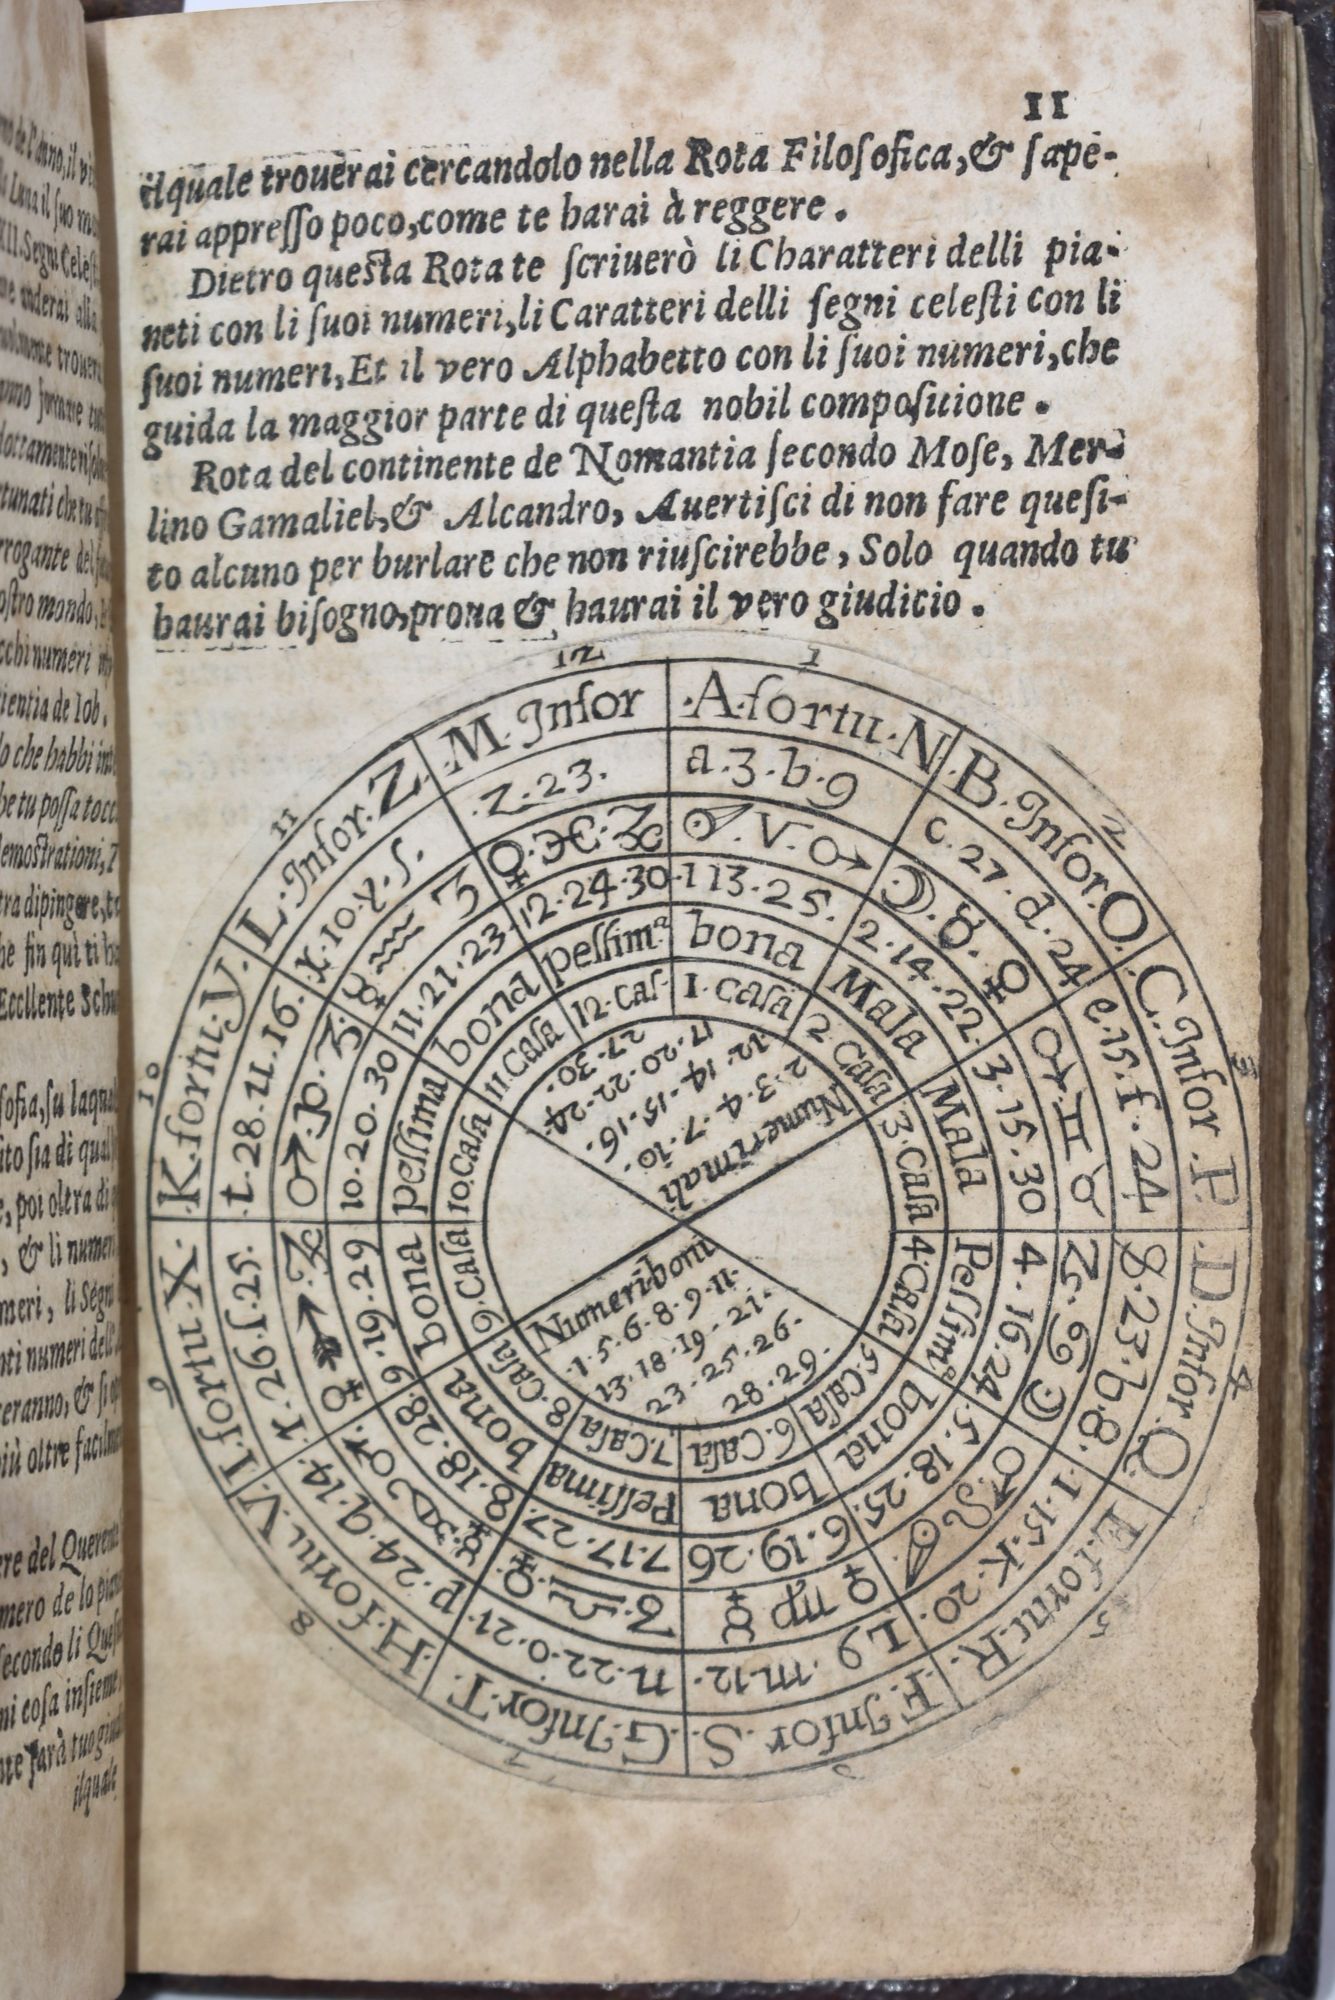 11
ilquale trouerai cercandolo nella Rota Filoſofica,& ſape-
rai appreſſo poco,come te harai à reggere.
Dietro queſta Rota te ſcriuerò li Charatteri delli pia-
neti con li ſuoi numeri,li Caratteri delli ſegni celeſti con li
ſuoi numeri,Et il vero Alphabetto con li ſuoi numeri,che
guida la maggior parte di queſta nobil compoſitione.
Rota del continente de Nomantia ſecondo Moſe, Mer-
lino Gamaliel,& Alcandro, Auertiſci di non fare queſi-
to alcuno per burlare che non riuſcirebbe, Solo quando tu
haurai biſogno,proua & haurai il vero giudicio.
1
.A.fortu.N
a.3.b.9
.V.♂
.1 13.25.
bona
1.caſa
2
.B.Inſor.O.
c.27.d.24
☽.♉.♀
2.14.22.
Mala
2.caſa
3
.C.Inſor.P.
e.15.f.24
♊
3.15.30
Mala
3.Caſa
4
.D.Inſor.Q.
g.23.h.8.
♋ ☽
4.16.24
Peſſimª
4.Caſa
5
E.fortu.R.
1.15.K.20
♂ ♌
.5.18.25.
bona
5.caſa
.F.Inſor.S.
L9.m.12.
♀ ♍ ☿
6.19.26
bona
6.Caſa
7
.G.Inſor.T.
n.22.o.21.
♀.♎
7.17.27.
Peſſima
7.Caſa
8
.H.fortu.V.
p.24.q.14.
8.18.28.
bona
8.Caſa
9
I.fortu.X.
r.26.ſ.25.
♐
9.19.29
bona
9.Caſa
10
K.fortu.Y.
t.28.u.16.
♂
10.20.30
peſſima
10.Caſa
11
L.Inſor.Z.
x.10.y.5.
☿ ♒
11.21.23.
bona
11.Caſa
12
.M.Inſor
.Z.23.
♀.♓
12.24.30
peſſimª
12.Caſ.
Numeri mali.
2.3.4.7.10.
12.14.15.16.
17.20.22.24.
27.30.
Numeri boni
.1.5.6.8.9.11.
13.18.19.21.
23.25.26.
28.29.